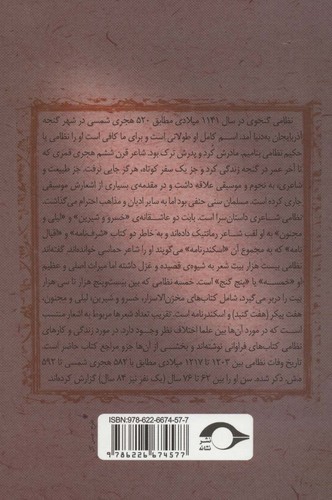 نظامی گنجوی در سال ۱۱۴۱ میلادی مطابق ۵۲۰ هجری شمسی در شهر گنجه
آذربایجان به‌دنیا آمد. اسم کامل او طولانی است و برای ما کافی است او را نظامی یا
حکیم نظامی بنامیم. مادرش کُرد و پدرش ترک بود. شاعر قرن ششم هجری قمری که
تا آخر عمر در گنجه زندگی کرد و جز یک سفر کوتاه، هرگز جایی نرفت. جز طبیعت و
شاعری به نجوم و موسیقی علاقه داشت و در مقدمه‌ی بسیاری از اشعارش موسیقی
جاری است. مسلمان سنی حنفی بود اما به سایر ادیان و مذاهب احترام می‌گذاشت.
نظامی شاعری داستان‌سرا است. بابت دو عاشقانه‌ی «خسرو و شیرین» و «لیلی و
مجنون» به او لقب شاعر رمانتیک داده‌اند و به خاطر دو کتاب «شرف‌نامه» و «اقبال
نامه» که به مجموع آن «اسکندرنامه» می‌گویند او را شاعر حماسی خوانده‌اند. گفته‌اند
نظامی بیست هزار بیت شعر به شیوه‌ی قصیده و غزل داشته اما میراث اصلی و عظیم
او «خمسه» یا «پنج گنج» است. خمسه نظامی که بین بیست‌وپنج هزار تا سی هزار
بیت را دربر می‌گیرد شامل کتاب‌های مخزن‌الاسرار، خسرو و شیرین، لیلی و مجنون،
هفت پیکر (هفت گنبد) و اسکندرنامه است. تقریب تعداد شعرها مربوط به اشعار منتسب
است که در مورد آن‌ها بین علما اختلاف نظر وجود دارد. در مورد زندگی و کارهای
نظامی کتاب‌های فراوانی نوشته‌اند و بخشی از آن‌ها جزو مراجع کتاب حاضر است.
تاریخ وفات نظامی بین ۱۲۰۳ تا ۱۲۱۷ میلادی مطابق با ۵۸۲ هجری شمسی تا ۵۹۲
ه‍.ش. ذکر شده. سن او را بین ۶۲ تا ۷۶ سال (یک نفر نیز ۸۴ سال) گزارش کرده‌اند.
ISBN: 978-622-6674-57-7
9 786226 674577
نشر
نشانه